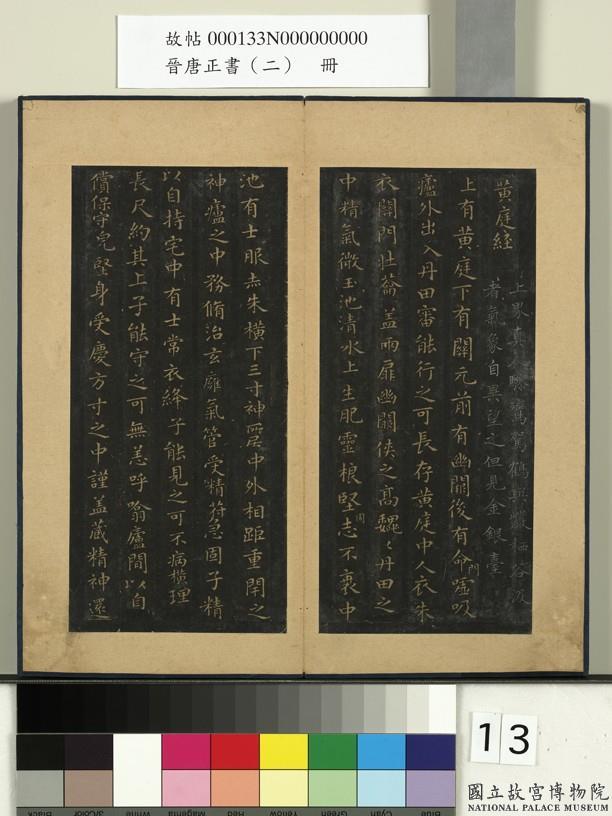 故帖 000133N000000000
晉唐正書（二）　冊
上界真
者氣象自異望之但見金銀臺
黃庭經
上有黃庭下有關元前有幽關後有命門噓吸
廬外出入丹田審能行之可長存黃庭中人衣朱
衣關門壯蘥蓋兩扉幽關俠之高巍巍丹田之
中精氣微玉池清水上生肥靈根堅固志不衰中
池有士服赤朱橫下三寸神所居中外相距重閇之
神廬之中務脩治玄廱氣管受精符急固子精
以自持宅中有士常衣絳子能見之可不病橫理
長尺約其上子能守之可無恙呼噏廬間以自
償保守完堅身受慶方寸之中謹蓋藏精神還
Black
3/Color
White
Magenta
Red
Yellow
Green
Cyan
Blue
13
國立故宮博物院
NATIONAL PALACE MUSEUM